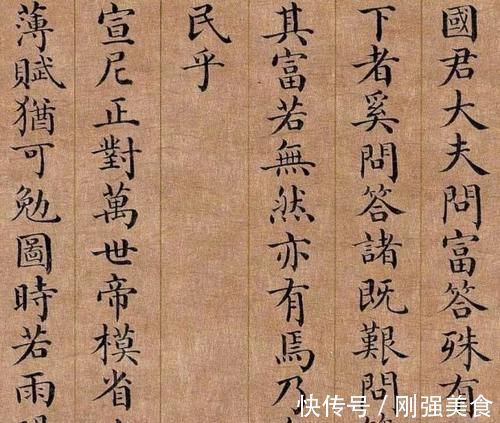 國君大夫問富答殊有
下者奚問答諸既艱問
其富若無然亦有焉乃
民乎
宣尼正對萬世帝模省
薄賦猶可勉圖時若雨
快传号 / 刚强美食